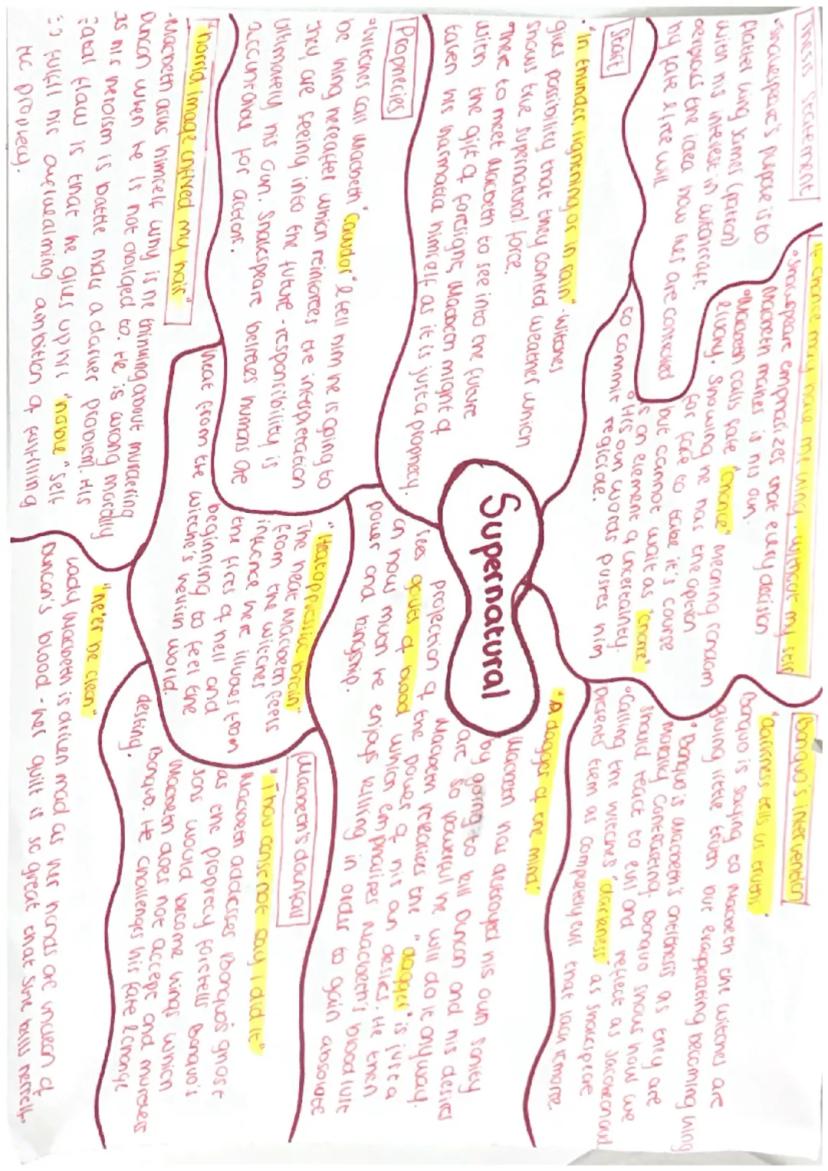 Supernatural
Thesis statement
"Shakespeare's purpose is to
flatter king James (patron)
with his interest in witchcraft.
 the idea how lies are connected
by fate & free will
Start
"In thunder, lightning or in rain" - witches
gives possibility that they control weather which
shows true supernatural force.
"There to meet Macbeth to see into the future
with the gift of foresight, Macbeth might of
taken his hamartia himself as it is just a prophecy.
Prophecies
"Witches call Macbeth "Cawdor" & tell him he is going to
be king hereafter which reinforces the interpretation
they are seeing into the future - responsibility is
ultimately his own. Shakespeare believes humans are
accountable for actions.
"horrid image unfixed my hair"
-Macbeth asks himself why is he thinking about murdering
Duncan when he is not obliged to. He is wrong morally
as his heroism is battle now a darker problem. His
fatal flaw is that he gives up his "noble" self
to fulfill his overwealming ambition of fulfilling
the prophecy.
If chance may have me king, without my self
"Shakespeare emphasizes that every decision
Macbeth makes is his own.
"Macbeth calls fate "chance" meaning random
& luckny. Showing he has the option
for fate to take it's course
but cannot wait as "chance"
is an element of uncertainty.
"His own words pushes him
to commit regicide.
Banquo's intervention
"darkness tells us truths"
Banquo is saying to Macbeth the witches are
giving little truth but exaggerating becoming king
"Banquo is Macbeth's antithesis as they are
morally contrasting. Banquo shows how we
should react to evil and reflect as Jacobean aud
"Calling the witches' "darkness" as Shakespeare
presents them as completely evil that lack remorse.
"A dagger of the mind"
Macbeth has destroyed his own sanity
by going to kill Duncan and his desires
are so powerful he will do it anyway.
Macbeth realises the "dagger" is just a
projection of the power of his own desires. He then
sees gouts of blood which emphasises Macbeth's bloodlust
on how much he enjoys killing in order to gain absolute
power and kingship.
"Heat oppressed brain"
The heat Macbeth feels
from the witches
influence here illudes from
the fires of hell and
beginning to feel the
heat from the witche's  world.
Macbeth's downfall
"Thou canst not say I did it"
Macbeth addresses Banquo's ghost
as the prophecy foretells Banquo's
sons would become kings which
Macbeth does not accept and murderers
Banquo. He challenges his fate & change
destiny.
"ne'er be clean"
Lady Macbeth is driven mad as her hands are unclean of
Duncan's blood - her guilt is so great that she kills herself.